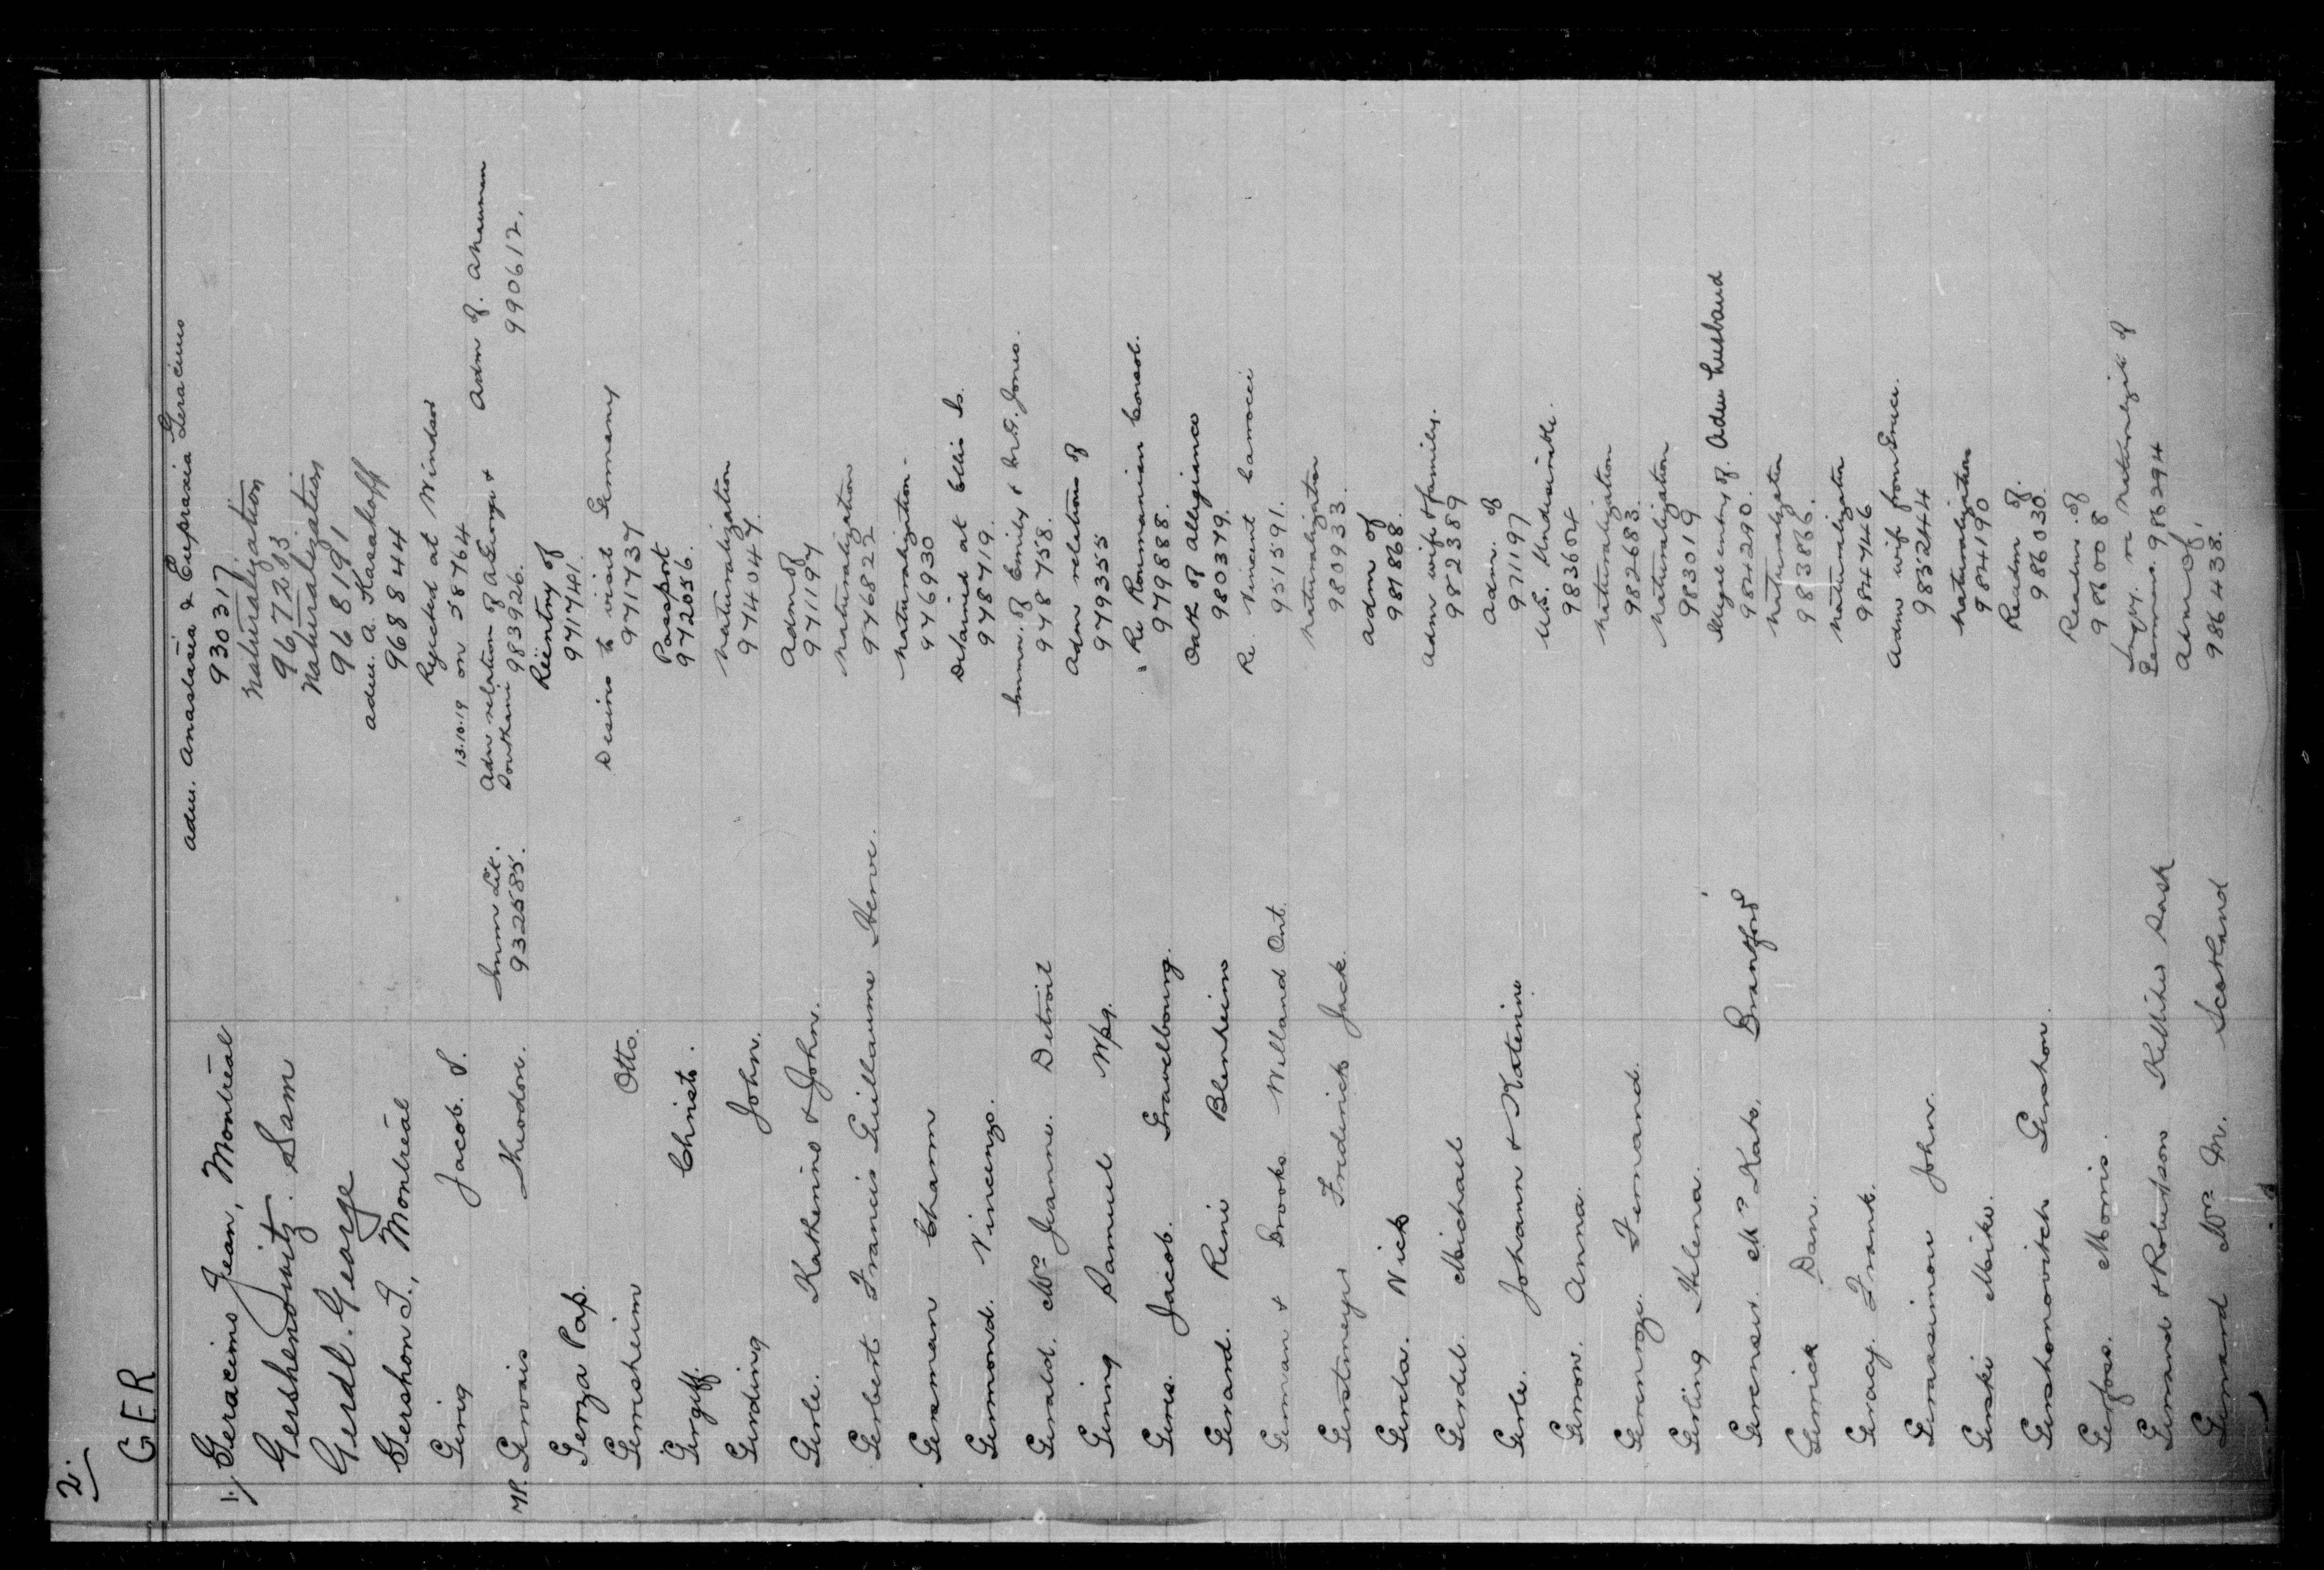 2.
GER
1/ Geracimo Jean, Montreal adm. Anastasia & Eupraxia Geracimo
93031
Gershenowitz. Sam Naturalization
967233
Gerdl. George Naturalization
968191
Gershon I., Montreal adm. A. Kasakoff
968844
Gerig Jacob. S. Rejected at Windsor
13.10.19 on 587644
MP. Gervais Theodore. Imm Lit. Adm relation of A George & Adm of. A Mauman
932585. Doukani 983926. 990612.
Gerza Pap. Reentry of
971741.
Gernsheim Otto. Desires to visit Germany
971737
Gergiff. Christo. Passport
972056.
Gerding John. Naturalization
974047.
Gerle. Katherine & John. Adm of
971197
Gerbert Francis Guillaume Herve. Naturalization
976822
German Cham Naturalization.
976930
Germond. Vincenzo. Detained at Ellis Is.
978719.
Gerald. Mrs Jeanne. Detroit Immn. of Emily & Jones.
978758.
Gering Samuel Wpg. Adm relations of
979355
Geres. Jacob. Gravelbourg. Re Roumanian Consol.
979888.
Gerard. Rene Blenheim Oath of Allegiance
980379.
German & Brooks Welland Ont. Re. Vincent Carrocci
951591.
Gerstmeyer Frederick Jack. Naturalization
980933.
Gereta. Nick Adm of
981868.
Gerdel. Michael Adm wife & family.
982389
Gerle. Johann & Katerine Adm. of
971197
Geron. Anna. U.S. Undesirable.
983604
Ferenand. Naturalization
982683.
Gerling Helena. Naturalization
983019
Gerenser. Mrs Kate, Brantford Illegal entry of. Adm husband
984290.
Gerrick Dan. Naturalization
983866.
Geracy. Frank. Naturalization
984746
Gerassimon John. Adm wife from Greece.
985244
Gerski Mike. Naturalization
984190
Gershonovitch Gershon. Readm of.
986030.
Gerfoss. Morris. Readm. of
986008
Gerrand & Robertson Kelliher Sask Inqy. re Naturalizn of
Germans. 986294
Gerrand Mrs M. Scotland Adm of
986438.